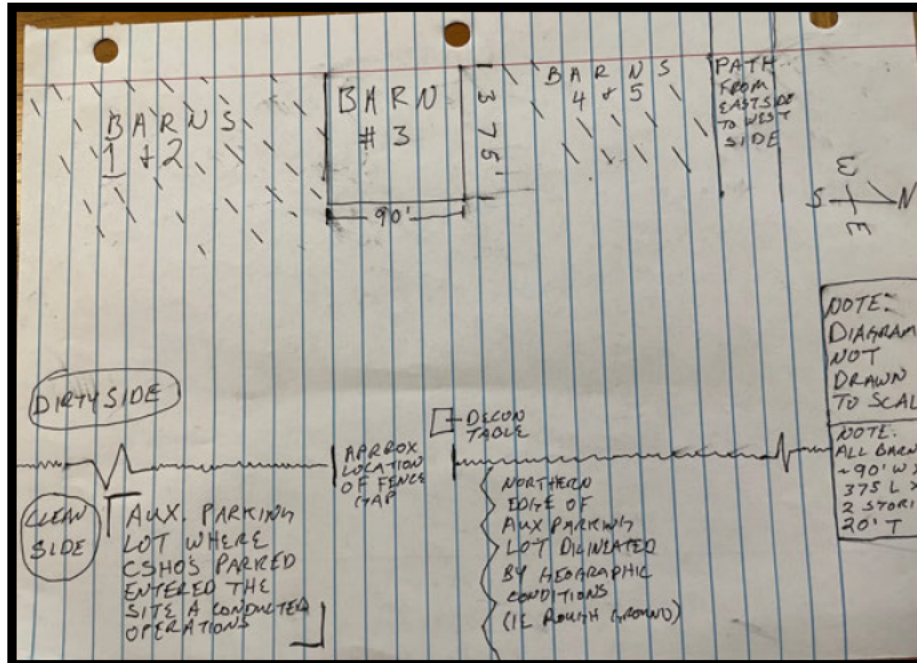 BARNS
1 + 2
BARN
# 3
375'
90'
BARNS
4 + 5
PATH
FROM
EASTSIDE
TO WEST
SIDE
W
S N
E
NOTE:
DIAGRAM
NOT
DRAWN
TO SCAL
NOTE:
ALL BARN
~90' W X
375 L X
2 STORI
20' T
DIRTY SIDE
DECON
TABLE
APPROX
LOCATION
OF FENCE
GAP
CLEAN
SIDE
AUX. PARKING
LOT WHERE
CSHOS PARKED
ENTERED THE
SITE A CONDUCTED
OPERATIONS
NORTHERN
EDGE OF
AUX PARKING
LOT DILINEATED
BY GEOGRAPHIC
CONDITIONS
(IE ROUGH GROUND)